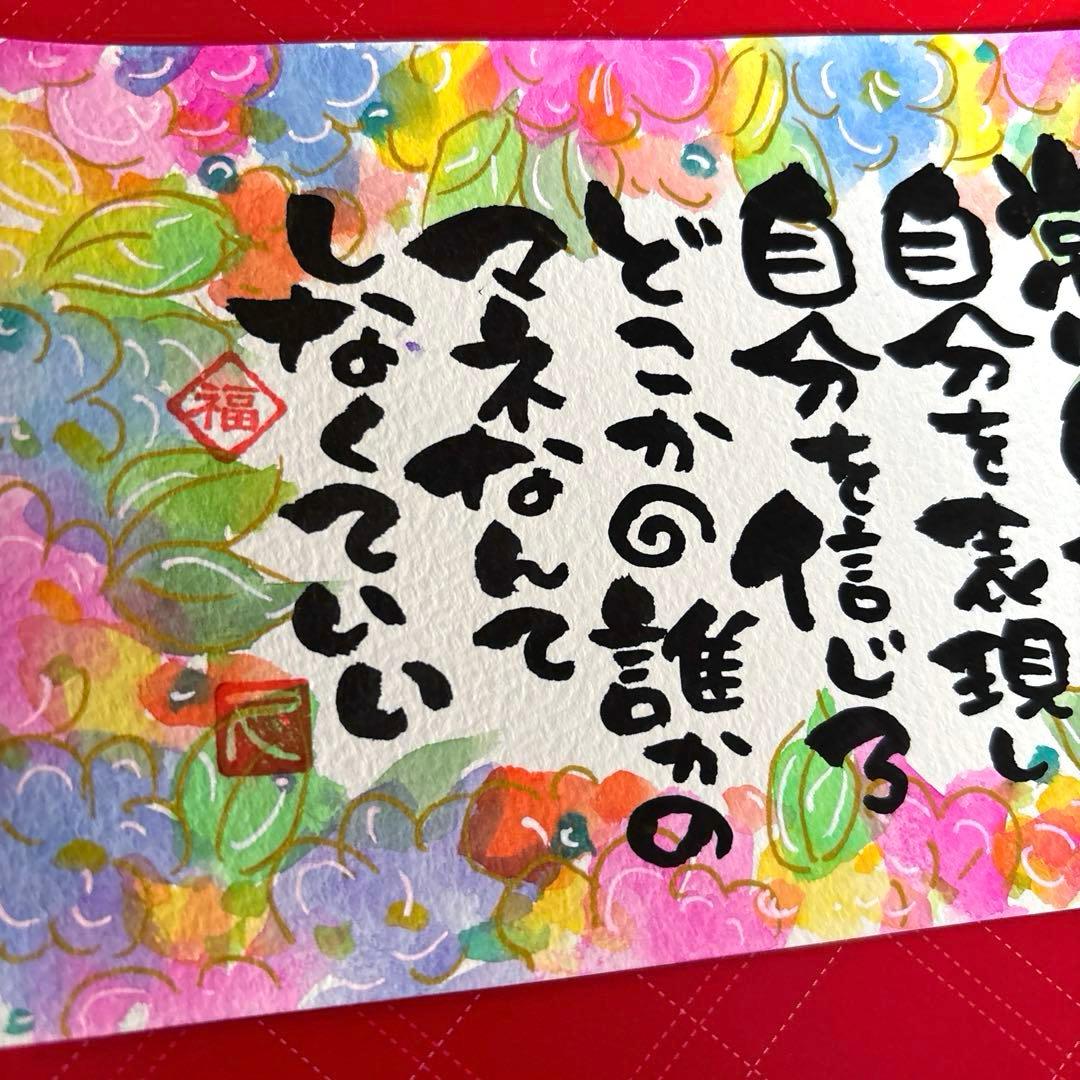 常に
自分を表現し
自分を信じろ
どこかの誰かの
マネなんて
しなくていい
福